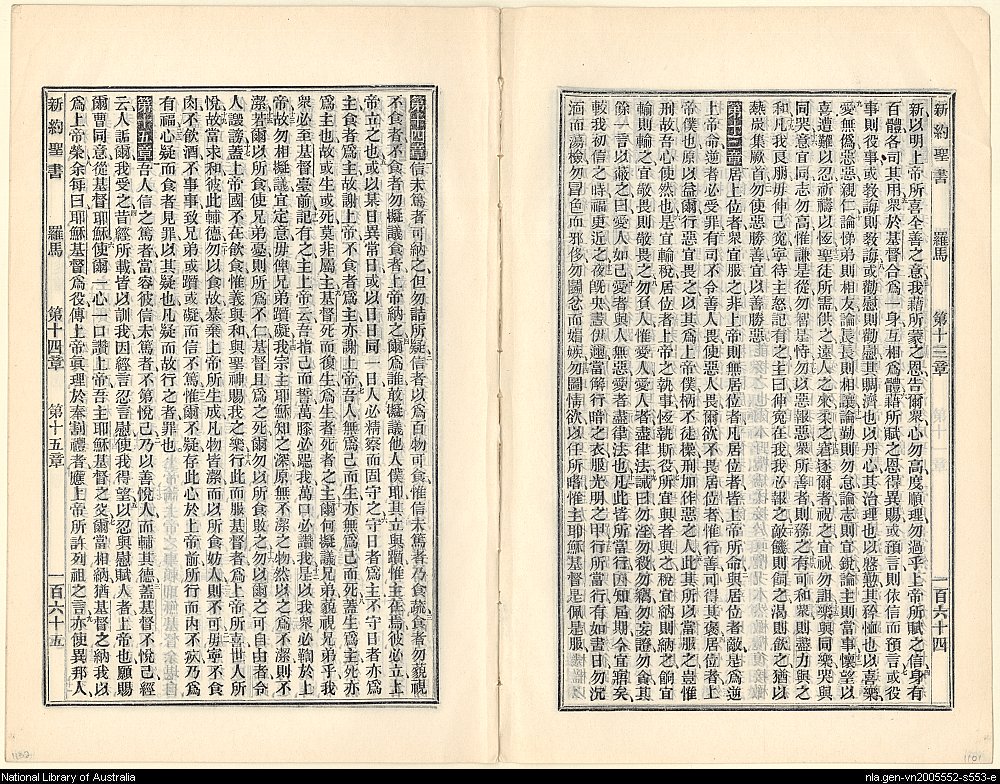 新約聖書 羅馬 第十三章 一百六十四
新以明上帝所喜全善之意我藉所蒙之恩告爾衆心勿高度順理勿過乎上帝所賦之信身有
百體各司其用衆於基督合爲一身互相爲體藉所賦之恩得異賜或預言則依信而預言或役
事則役事或教誨則教誨或勸慰則勸慰其賙濟也以丹心其治理也以慇懃其矜恤也以喜樂
愛無僞惡惡親仁論悌弟則相友論長長則相讓論勤則勿怠論志則宜銳論主則當事懷望以
喜遭難以忍祈禱以恆聖徒所需供之遠人之來柔之窘逐爾者視之宜祝勿詛樂與同樂哭與
同哭意宜同志勿高惟謙是從勿智是恃勿以惡報惡衆所善者則務之有可和衆則盡力與之
和凡我良朋毋伸己寃寧待主怒記有之主曰伸寃在我我必報之敵饑則飼之渴則飲之猶以
熱炭集厥首勿使惡勝善宜以善勝惡
第十三章居上位者衆宜服之非上帝則無居位者凡居位者皆上帝所命與居位者敵是爲逆
上帝命逆者必受罪有司不令善人畏使惡人畏爾欲不畏居位者惟行善可得其褒居位者上
帝僕也原以益爾行惡宜畏之以其爲上帝僕柄不徒操刑加作惡之人此其所以當服之豈惟
刑故亦吾心使然也是宜輸稅居位者上帝之執事恆執斯役所宜與者與之稅宜納則納之餉宜
輸則輸之宜敬畏則敬畏之勿負人惟愛人愛人者盡律法誡曰勿淫勿殺勿竊勿妄證勿貪其
餘一言以蔽之曰愛人如己愛者與人無惡愛者盡律法也凡此皆所當行因知屆期今宜寤矣
較我初信之時福更近之夜旣央晝伊邇當解行暗之衣服光明之甲行所當行有如晝日勿沉
湎而蕩檢勿冒色而邪侈勿鬭忿而媢嫉勿圖情欲以任所嗜惟主耶穌基督是佩是服
第十四章信未篤者可納之但勿詰所疑信者以爲百物可食惟信未篤者乃食疏食者勿藐視
不食者不食者勿擬議食者上帝納之爾爲誰敢擬議他人僕耶其立與躓惟主在焉彼必立上
帝立之也或以某日異常日或以日日同一日人必精察而固守之守日者爲主不守日者亦爲
主食者爲主故謝上帝不食者爲主亦謝上帝吾人無爲己而生亦無爲己而死蓋生爲主死亦
爲主也故或生或死莫非屬主基督死而復生爲生者死者之主爾何擬議兄弟藐視兄弟乎我
衆必至基督臺前記有之主上帝云吾指己而誓萬膝必跽我萬口必讚我是以我衆必鞫於上
帝故勿相擬議宜定意毋俾兄弟躓礙我宗主耶穌知之深原無不潔之物然以之爲不潔則不
潔若爾以所食使兄弟憂則所爲不仁基督且爲之死爾勿以所食敗之勿以爾之可自由者令
人謗讟蓋上帝國不在飲食惟義與和與聖神賜我之樂行此而服基督者爲上帝所喜世人所
悅故當求和彼此輔德勿以食故暴棄上帝所生成凡物皆潔而以所食妨人則不可毋寧不食
肉不飲酒不事事致兄弟或躓或礙而信不篤惟爾不疑存此心於上帝前所行而內不疚乃爲
有福心疑而食者見罪以其疑也凡疑而故行之者罪也
第十五章吾人信之篤者當容彼信未篤者不第悅己乃以善悅人而輔其德蓋基督不悅己經
云人詬爾我受之昔經所載皆以訓我因經言忍言慰使我得望以忍與慰賦人者上帝也願賜
爾曹同意從基督耶穌使爾一心一口讚上帝吾主耶穌基督之父爾當相納猶基督之納我以
爲上帝榮余每曰耶穌基督爲役傳上帝眞理於奉割禮者應上帝所許列祖之言亦使異邦人
新約聖書 羅馬 第十四章 第十五章 一百六十五
National Library of Australia
nla.gen-vn2005552-s553-e